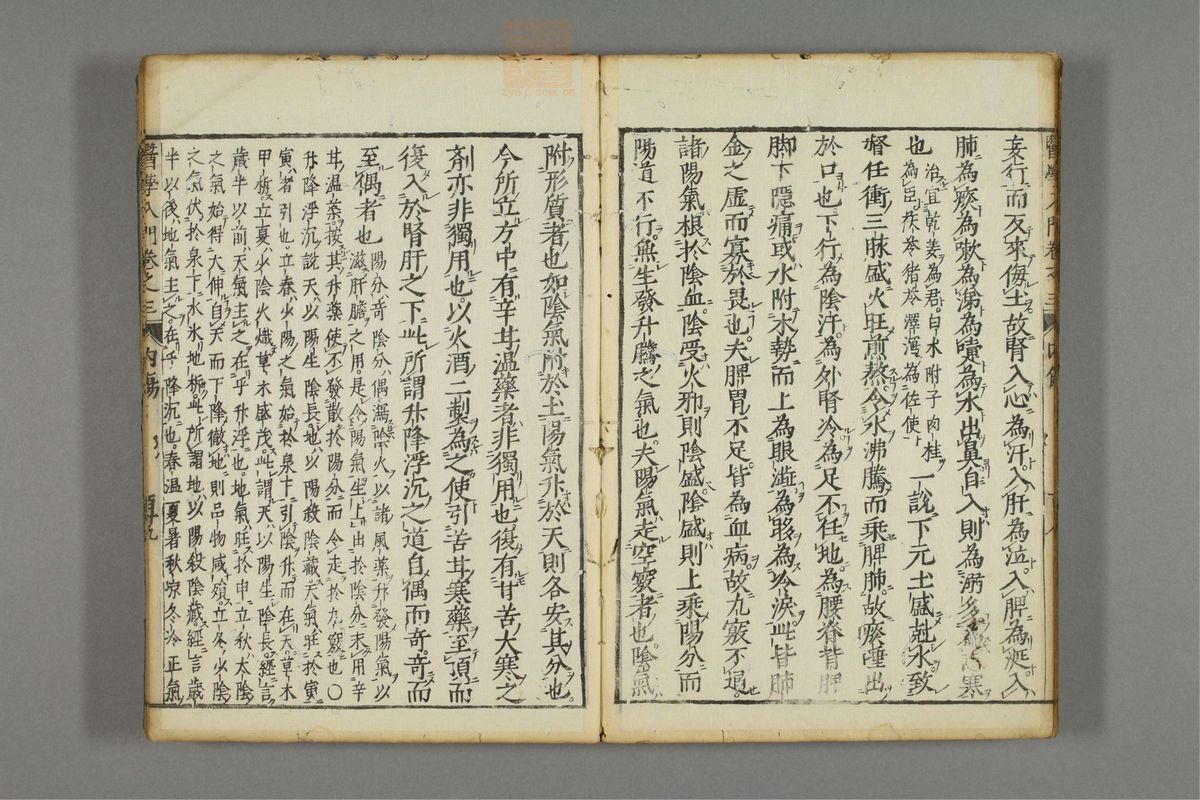 醫學入門卷之三
妄行而反來侮土故腎入心為汗入肝為泣入脾為涎入
肺為痰為嗽為涕為嚏為水出鼻自入則為溺多寒
也治宜乾姜為君白朮附子肉桂
為臣茯苓猪苓澤瀉為佐使
一說下元土盛尅水致
督任衝三脉盛火旺煎熬令水沸騰而乘脾肺故痰唾出
於口也下行為陰汗為外腎冷為足不任地為腰脊背胛
脚下隱痛或水附木勢而上為眼澁為眵為冷淚此皆肺
金之虛而寡於畏也夫脾胃不足皆為血病故九竅不通
諸陽氣根於陰血陰受火邪則陰盛陰盛則上乘陽分而
陽道不行無生發升騰之氣也夫陽氣走空竅者也陰氣
附形質者也如陰氣附於土陽氣升於天則各安其分也
今所立方中有辛甘溫藥者非獨用也復有甘苦大寒之
劑亦非獨用也以火酒二製為之使引苦甘寒藥至頂而
復入於腎肝之下此所謂升降浮沉之道自偶而奇奇而
至偶者也陽分奇陰分偶瀉陰火以諸風藥升發陽氣以
滋肝膽之用是令陽氣生上出於陰分末用辛
甘溫藥接其升藥使不發散於陽分而令走於九竅也〇
升降浮沉說天以陽生陰長地以陽殺陰藏天氣旺於寅
寅者引也立春少陽之氣始於泉下引陰升而在天草木
甲拆立夏少陰火熾草木盛茂此謂天以陽生陰長經言
歲半以前天氣主之在乎升浮也地氣旺於申立秋太陰
之氣始得大伸自天而下降徹地則品物咸殞立冬少陰
之氣伏於泉下水氷地拆此所謂地以陽殺陰藏經言歲
半以後地氣主之在乎降沉也春溫夏暑秋凉冬冷正氣
醫學入門卷之三 内傷